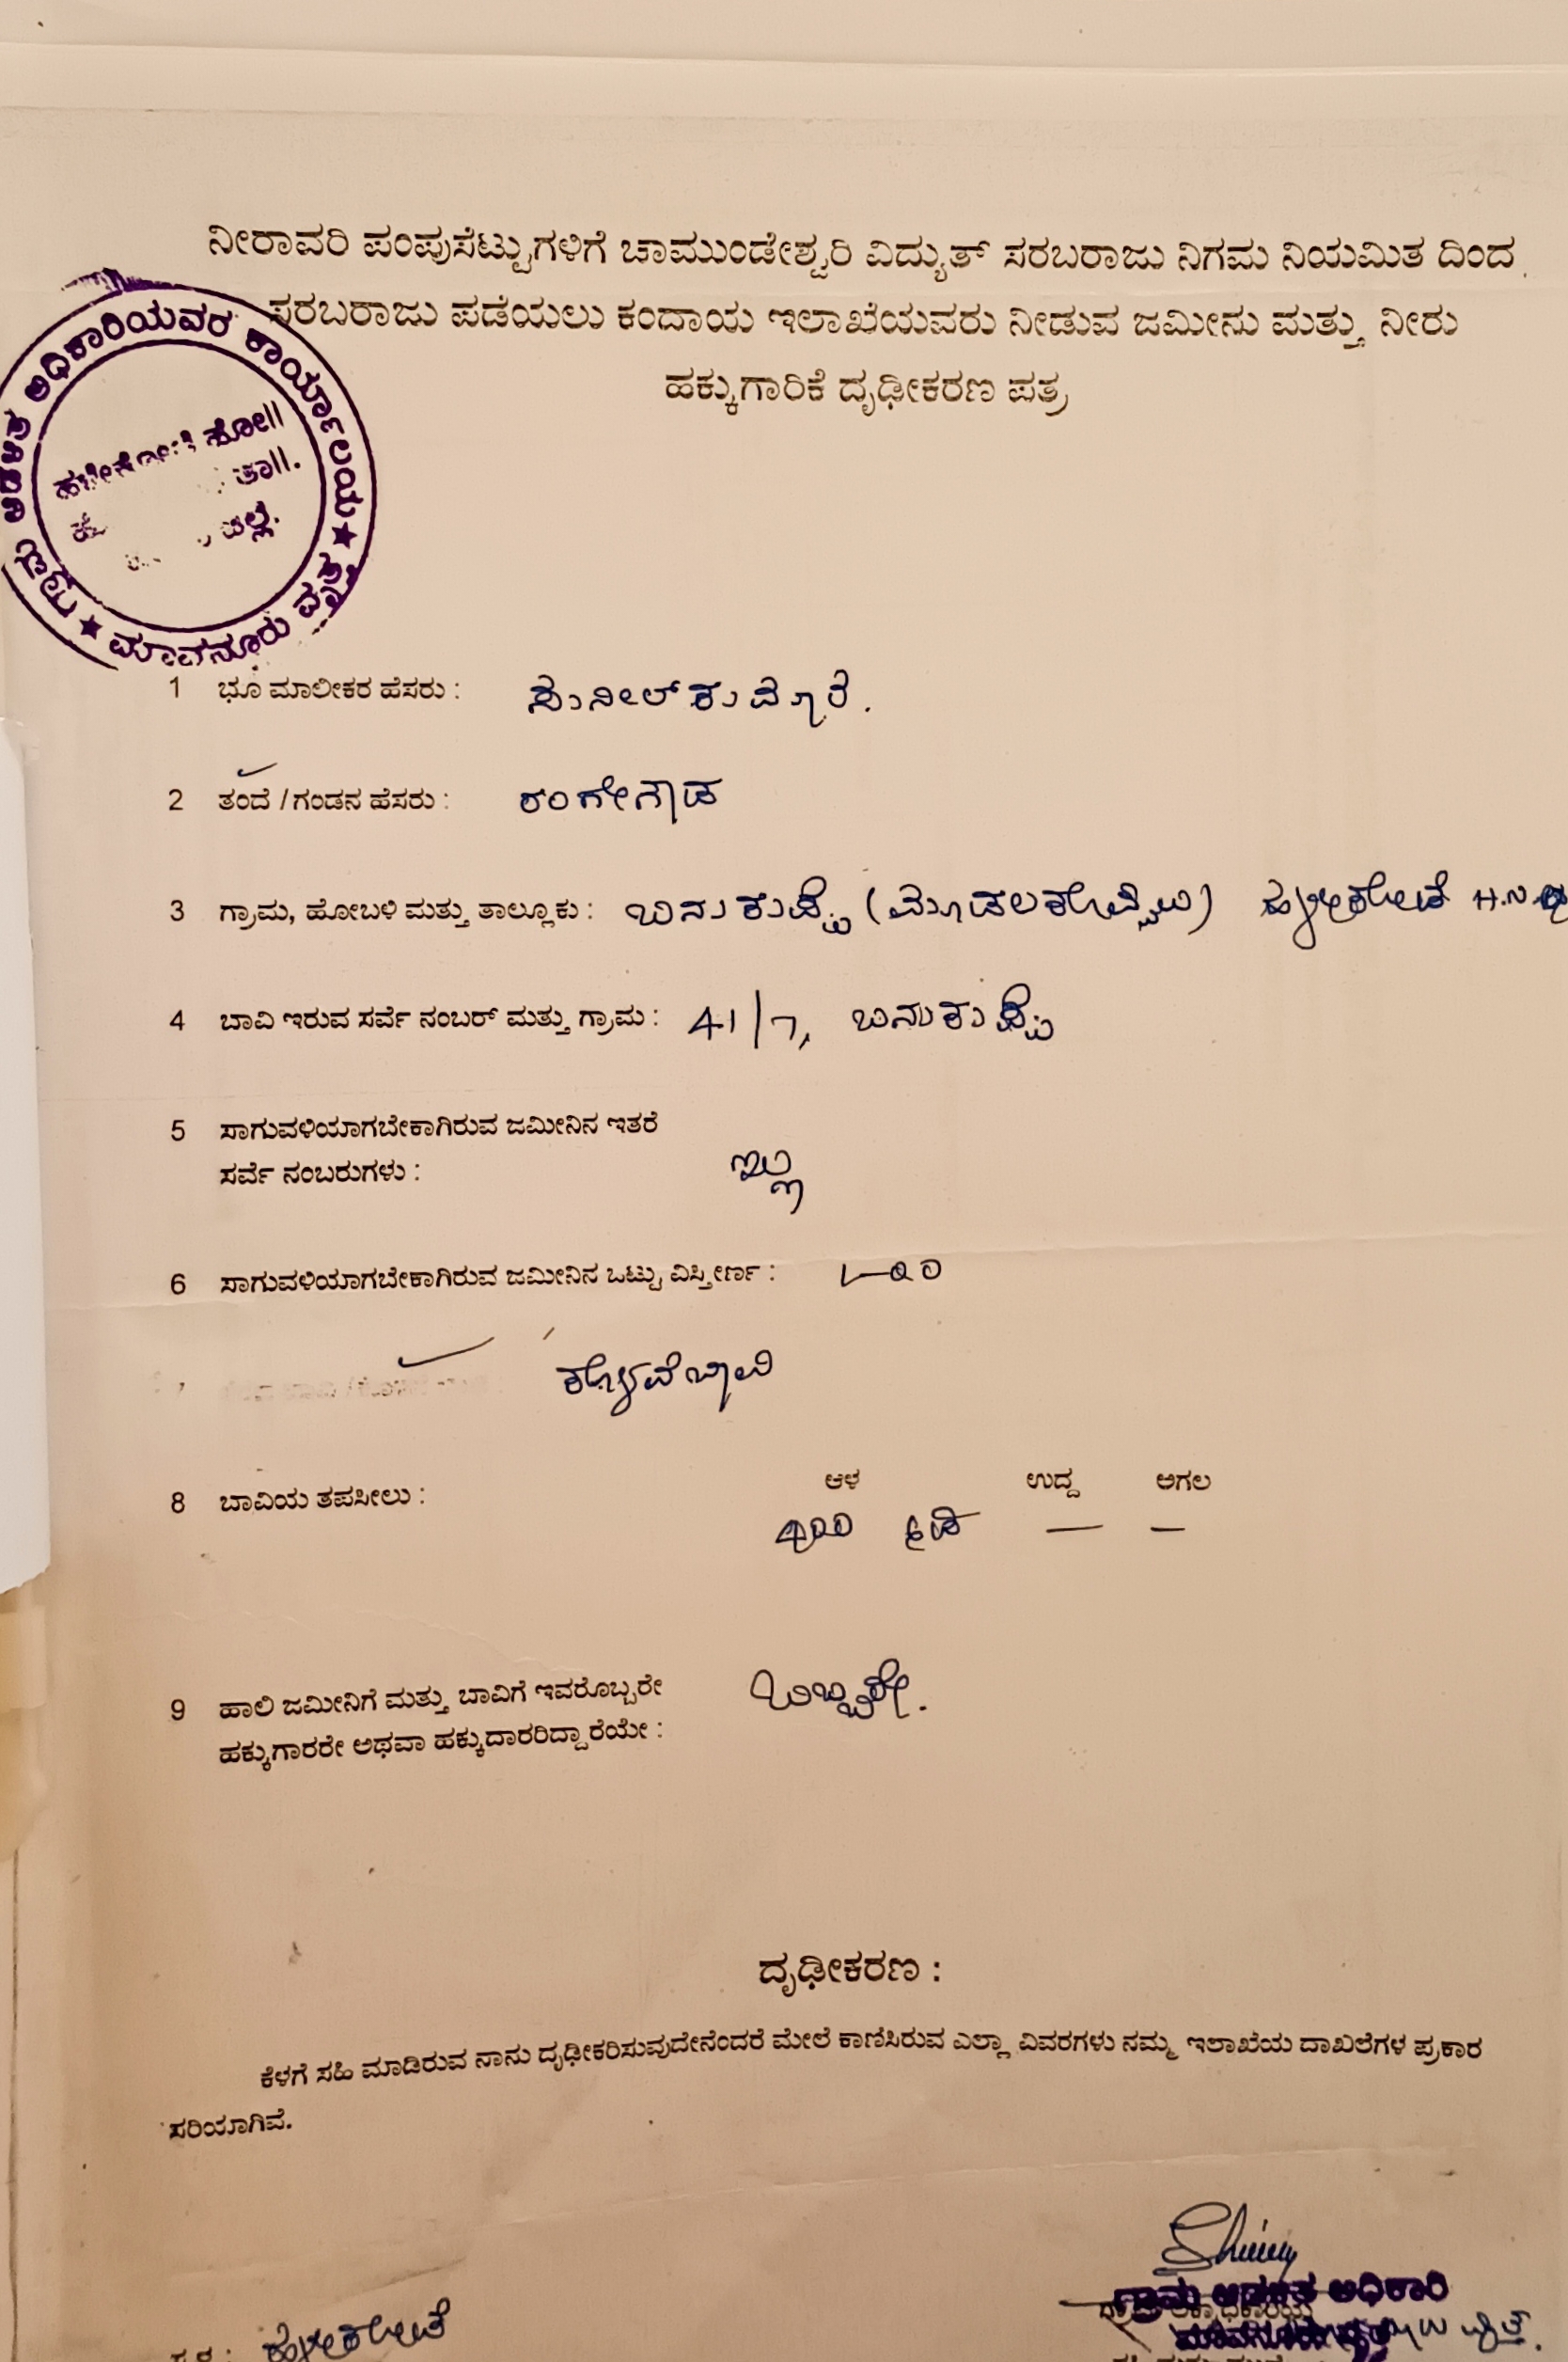 ನೀರಾವರಿ ಪಂಪುಸೆಟ್ಟುಗಳಿಗೆ ಚಾಮುಂಡೇಶ್ವರಿ ವಿದ್ಯುತ್ ಸರಬರಾಜು ನಿಗಮ ನಿಯಮಿತ ದಿಂದ
ಸರಬರಾಜು ಪಡೆಯಲು ಕಂದಾಯ ಇಲಾಖೆಯವರು ನೀಡುವ ಜಮೀನು ಮತ್ತು ನೀರು
ಹಕ್ಕುಗಾರಿಕೆ ದೃಢೀಕರಣ ಪತ್ರ
ಗ್ರಾಮ ಆಡಳಿತ ಅಧಿಕಾರಿಯವರ ಕಾರ್ಯಾಲಯ ★ ಮಾವನೂರು ವೃತ್ತ ★
ಹೋ||
ತಾ||.
1 ಭೂ ಮಾಲೀಕರ ಹೆಸರು : ಸುನೀಲ್ ಕುಮಾರ.
2 ತಂದೆ / ಗಂಡನ ಹೆಸರು : ರಂಗೇಗೌಡ
3 ಗ್ರಾಮ, ಹೋಬಳಿ ಮತ್ತು ತಾಲ್ಲೂಕು : ಐನುಕುಪ್ಪೆ (ಮೂಡಲಕೊಪ್ಪಲು) ಹಳೇಕೋಟೆ
4 ಬಾವಿ ಇರುವ ಸರ್ವೆ ನಂಬರ್ ಮತ್ತು ಗ್ರಾಮ : 41/7, ಐನುಕುಪ್ಪೆ
5 ಸಾಗುವಳಿಯಾಗಬೇಕಾಗಿರುವ ಜಮೀನಿನ ಇತರೆ
ಸರ್ವೆ ನಂಬರುಗಳು : ಇಲ್ಲ
6 ಸಾಗುವಳಿಯಾಗಬೇಕಾಗಿರುವ ಜಮೀನಿನ ಒಟ್ಟು ವಿಸ್ತೀರ್ಣ :
ಕೊಳವೆಬಾವಿ
8 ಬಾವಿಯ ತಪಸೀಲು : ಆಳ ಉದ್ದ ಅಗಲ
ಅಡಿ — —
9 ಹಾಲಿ ಜಮೀನಿಗೆ ಮತ್ತು ಬಾವಿಗೆ ಇವರೊಬ್ಬರೇ
ಹಕ್ಕುಗಾರರೇ ಅಥವಾ ಹಕ್ಕುದಾರರಿದ್ದಾರೆಯೇ : ಒಬ್ಬರೇ.
ದೃಢೀಕರಣ :
ಕೆಳಗೆ ಸಹಿ ಮಾಡಿರುವ ನಾನು ದೃಢೀಕರಿಸುವುದೇನೆಂದರೆ ಮೇಲೆ ಕಾಣಿಸಿರುವ ಎಲ್ಲಾ ವಿವರಗಳು ನಮ್ಮ ಇಲಾಖೆಯ ದಾಖಲೆಗಳ ಪ್ರಕಾರ
ಸರಿಯಾಗಿವೆ.
ಗ್ರಾಮ ಆಡಳಿತ ಅಧಿಕಾರಿ
ಹಳೇಕೋಟೆ